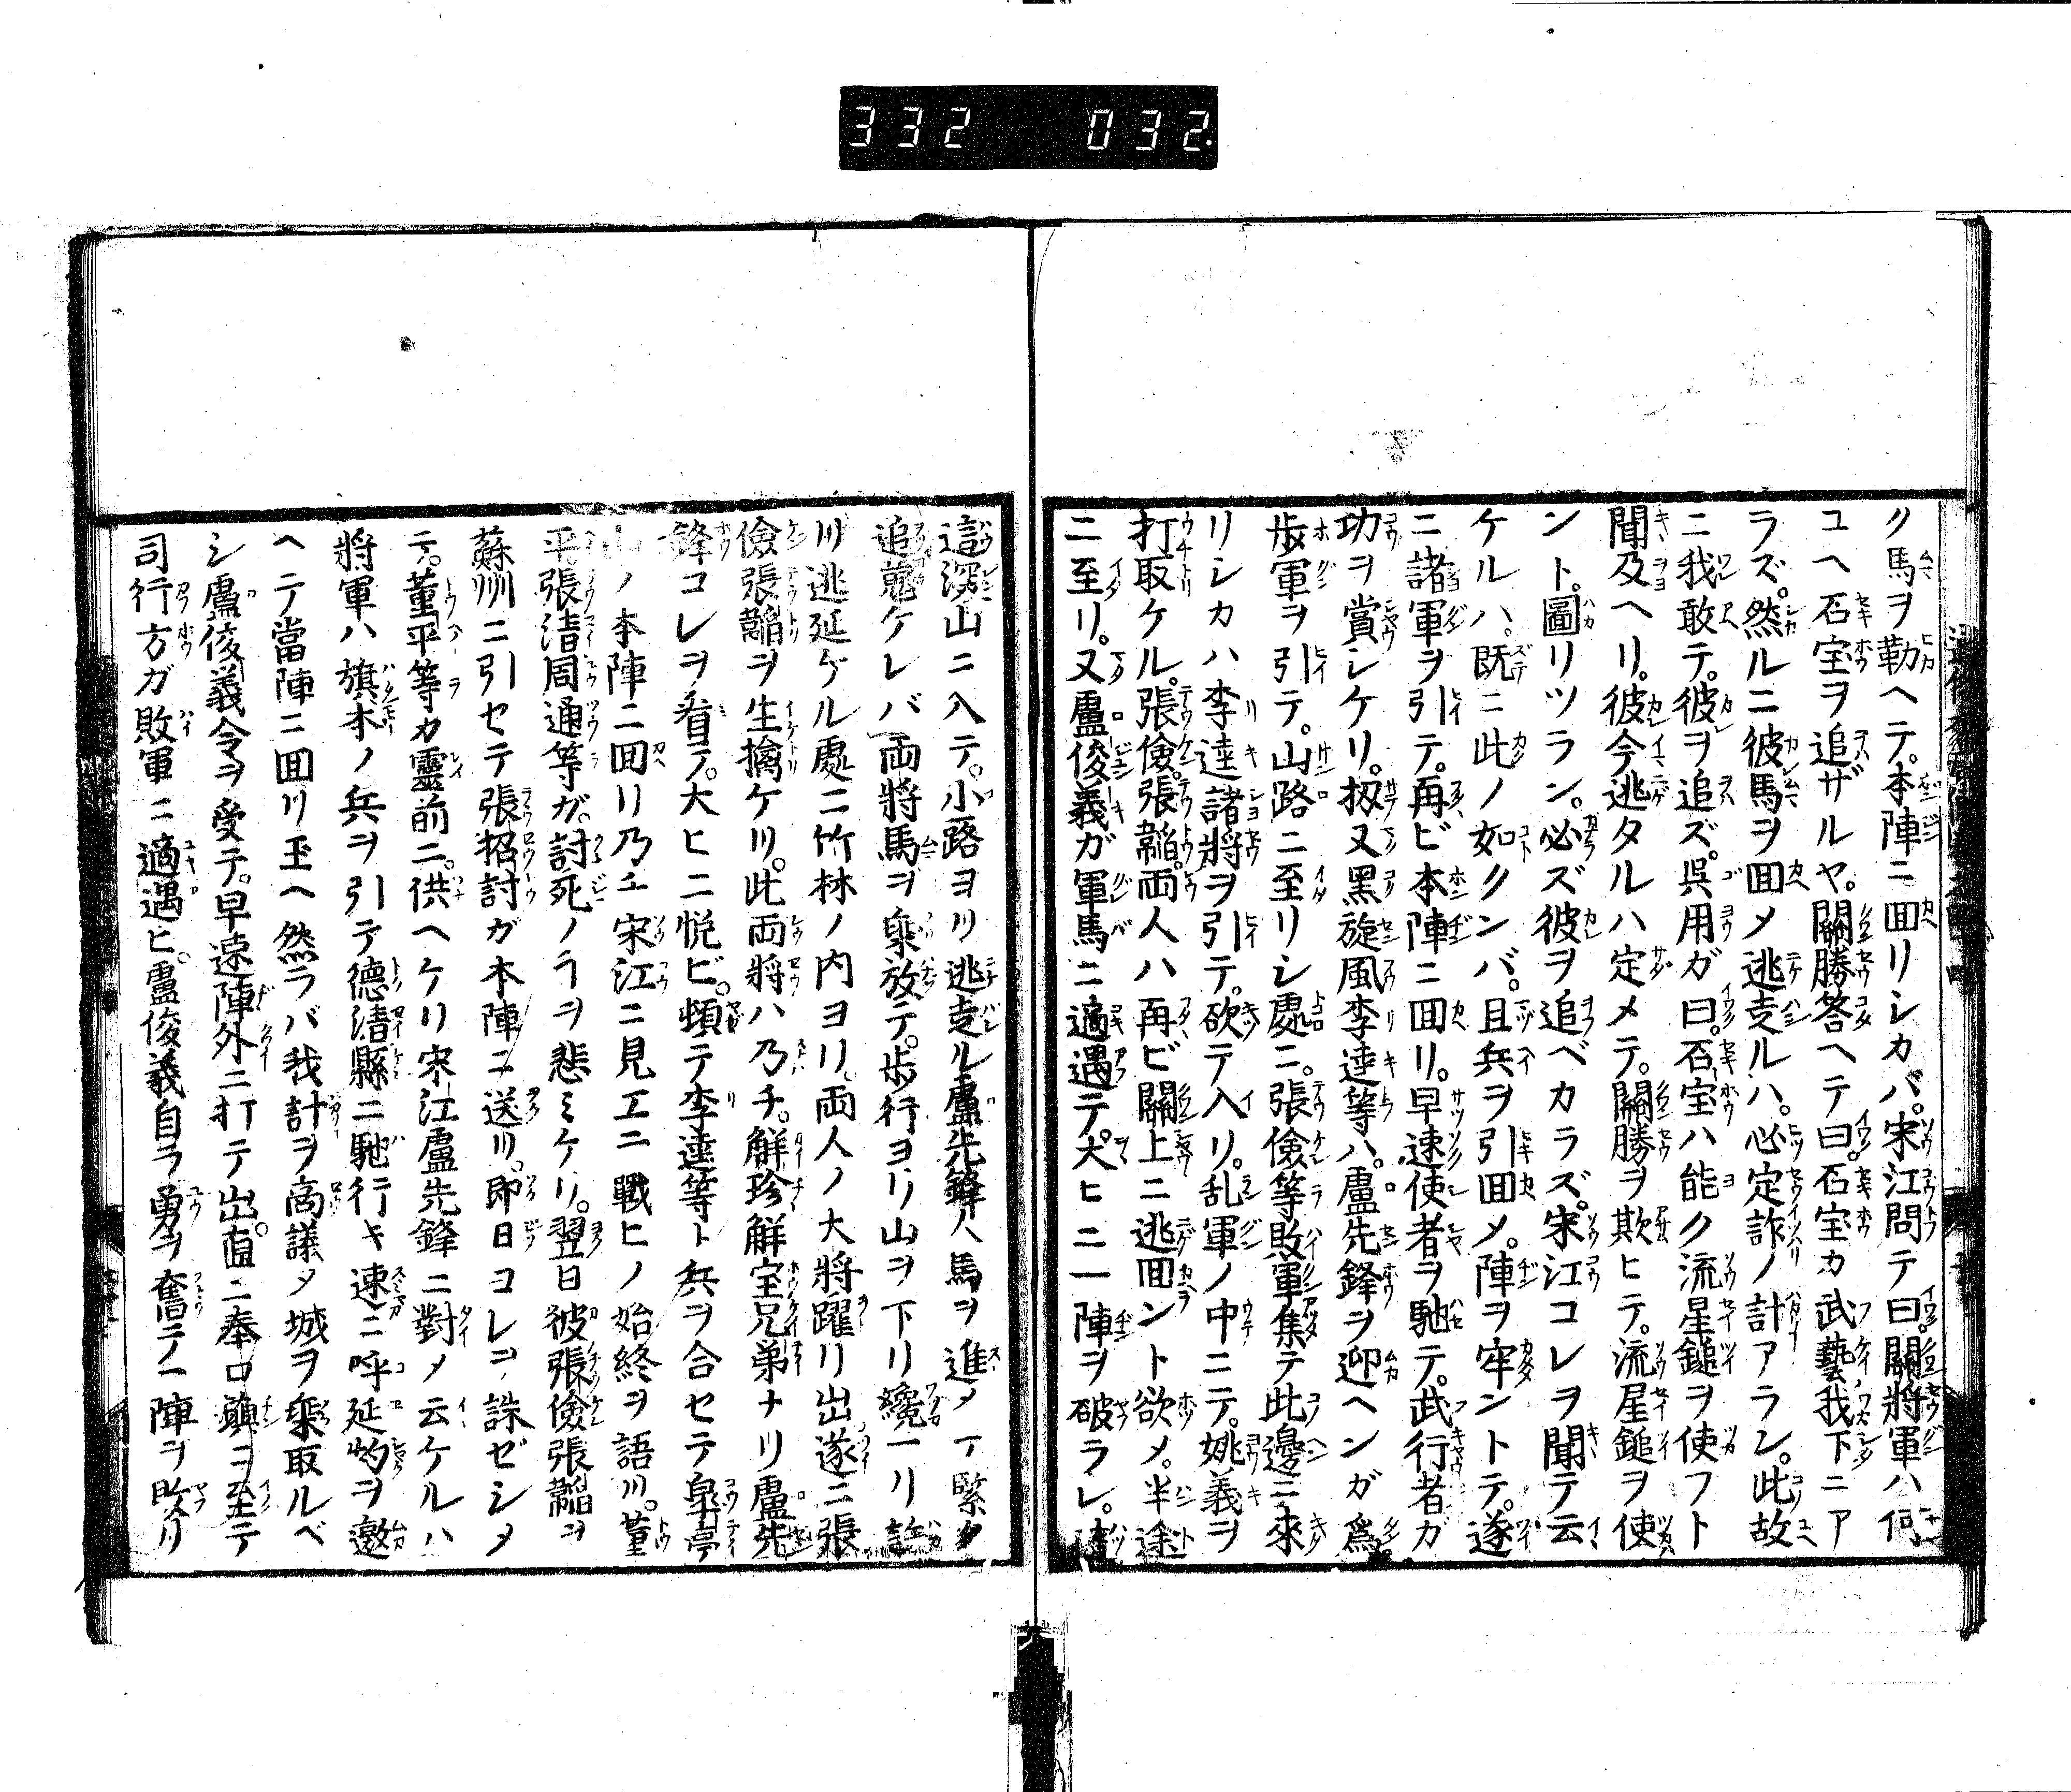 332 032.
ク馬ヲ勒ヘテ。本陣ニ囬リシカバ。宋江問テ曰。關將軍ハ何
ユヘ石宝ヲ追ザルヤ。關勝答ヘテ曰。石宝カ武藝我下ニア
ラズ。然ルニ彼馬ヲ囬メ逃走ルハ。必定詐ノ計アラン。此故
ニ我敢テ。彼ヲ追ズ。呉用ガ曰。石宝ハ能ク流星鎚ヲ使フト
聞及ヘリ。彼今逃タルハ定メテ。關勝ヲ欺ヒテ。流星鎚ヲ使
ント。圖リツラン。必ズ彼ヲ追ベカラズ。宋江コレヲ聞テ云
ケルハ。既ニ此ノ如クンバ。且兵ヲ引囬メ。陣ヲ牢ントテ。遂
ニ諸軍ヲ引テ。再ビ本陣ニ囬リ。早速使者ヲ馳テ。武行者ガ
功ヲ賞シケリ。扨又黒旋風李逵等ハ。盧先鋒ヲ迎ヘンガ爲
歩軍ヲ引テ。山路ニ至リシ處ニ。張儉等敗軍集テ此邊ニ來
リシカハ李逵諸將ヲ引テ。欲テ入リ。乱軍ノ中ニテ。姚義ヲ
打取ケル。張儉。張韜。両人ハ再ビ關上ニ逃囬ント欲メ。半途
ニ至リ。又盧俊義ガ軍馬ニ適遇テ。大ヒニ一陣ヲ破ラレ。
深山ニ入テ。小路ヨリ逃走ル盧先鋒人馬ヲ進メテ緊ク
追蒐ケレバ両將馬ヲ乗放テ。歩行ヨリ山ヲ下リ纔一リ許
リ逃延ケル處ニ竹林ノ内ヨリ。両人ノ大將躍リ出遂ニ張
儉張韜ヲ生擒ケリ。此両將ハ乃チ。解珍解宝兄弟ナリ盧先
鋒コレヲ看テ。大ヒニ悦ビ。頓テ李逵等ト兵ヲ合セテ皐亭
山ノ本陣ニ囬リ乃チ宋江ニ見エニ戰ヒノ始終ヲ語リ。董
平張清周通等ガ。討死ノヿヲ悲ミケリ。翌日彼張儉張韜ヲ
蘇州ニ引セテ張招討ガ本陣ニ送リ。即日コレヲ誅ゼシメ
テ。董平等カ靈前ニ。供ヘケリ宋江盧先鋒ニ對メ云ケルハ
將軍ハ旗本ノ兵ヲ引テ德清縣ニ馳行キ速ニ呼延灼ヲ邀
ヘテ當陣ニ囬リ玉ヘ然ラバ我計ヲ商議メ城ヲ乗取ルベ
シ盧俊義令ヲ受テ。早速陣外ニ打テ出。直ニ奉口鎮ニ至テ
司行方ガ敗軍ニ適遇ヒ。盧俊義自ラ勇ヲ奮テ一陣ヲ敗リ